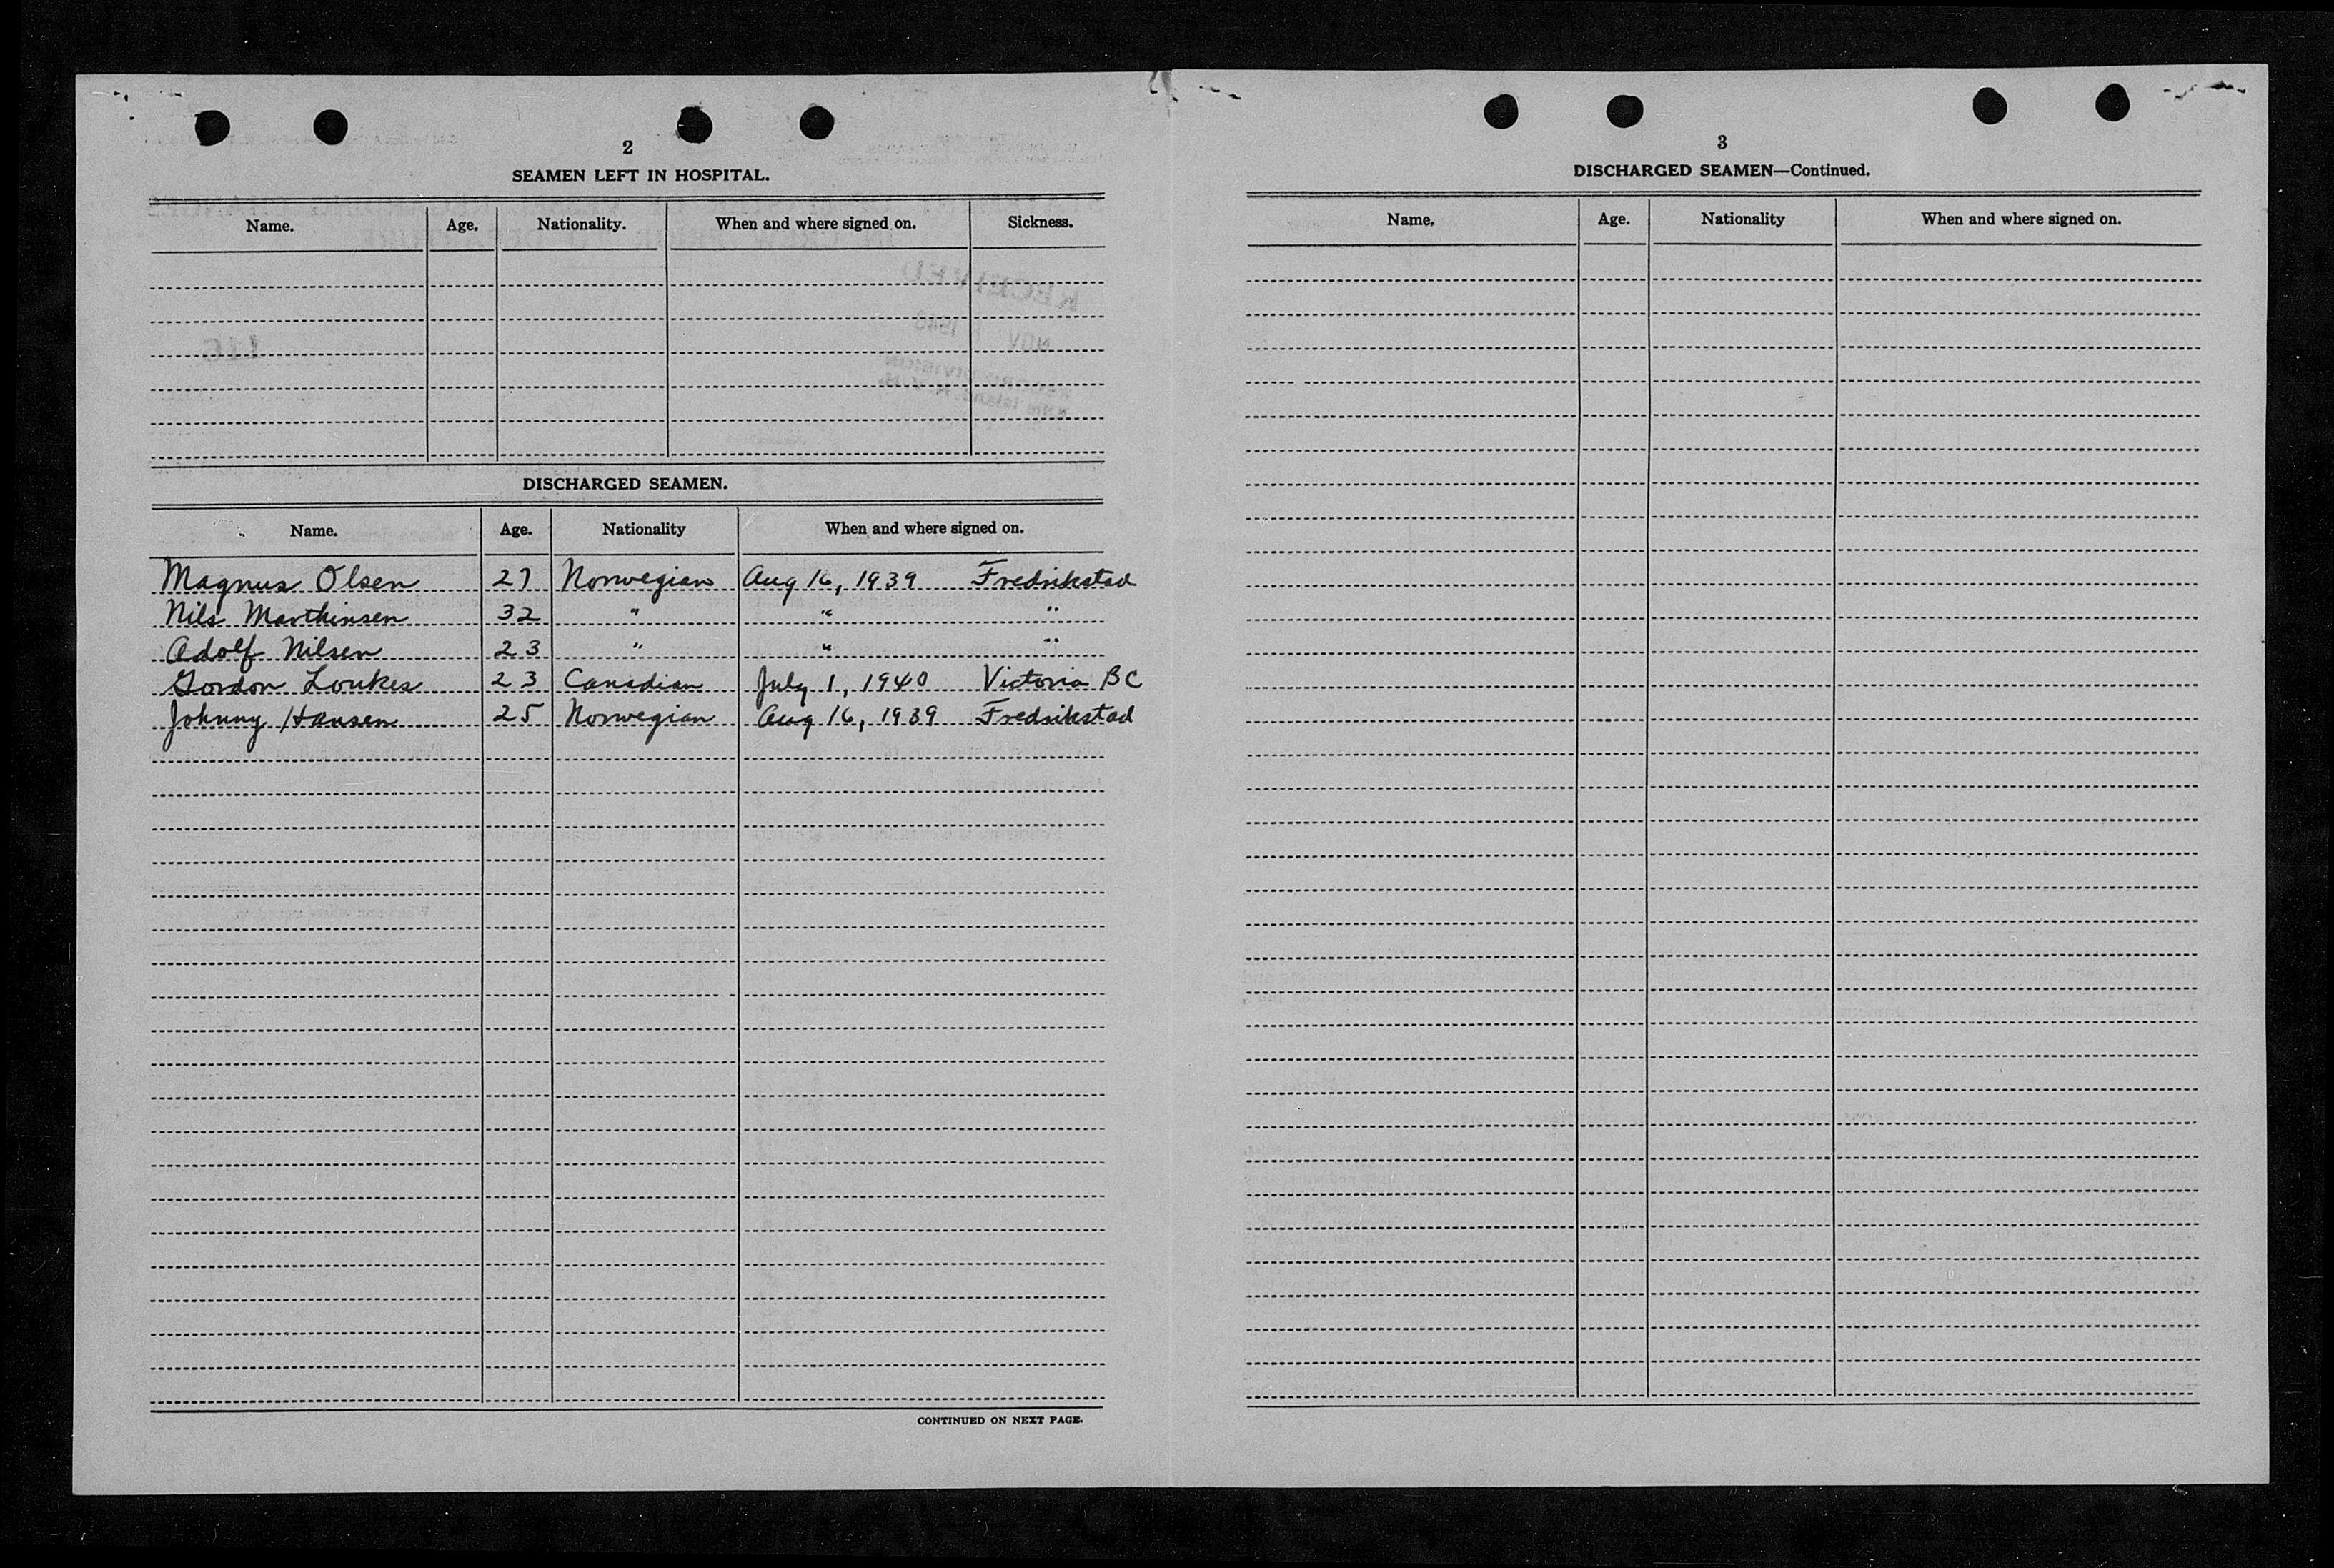 2
SEAMEN LEFT IN HOSPITAL.
Name. Age. Nationality. When and where signed on. Sickness.
DISCHARGED SEAMEN.
Name. Age. Nationality When and where signed on.
Magnus Olsen 27 Norwegian Aug 16, 1939 Fredrikstad
Nils Marthinsen 32 " " "
Adolf Nilsen 23 " " "
Gordon Loukes 23 Canadian July 1, 1940 Victoria BC
Johnny Hansen 25 Norwegian Aug 16, 1939 Fredrikstad
CONTINUED ON NEXT PAGE.
3
DISCHARGED SEAMEN—Continued.
Name. Age. Nationality When and where signed on.